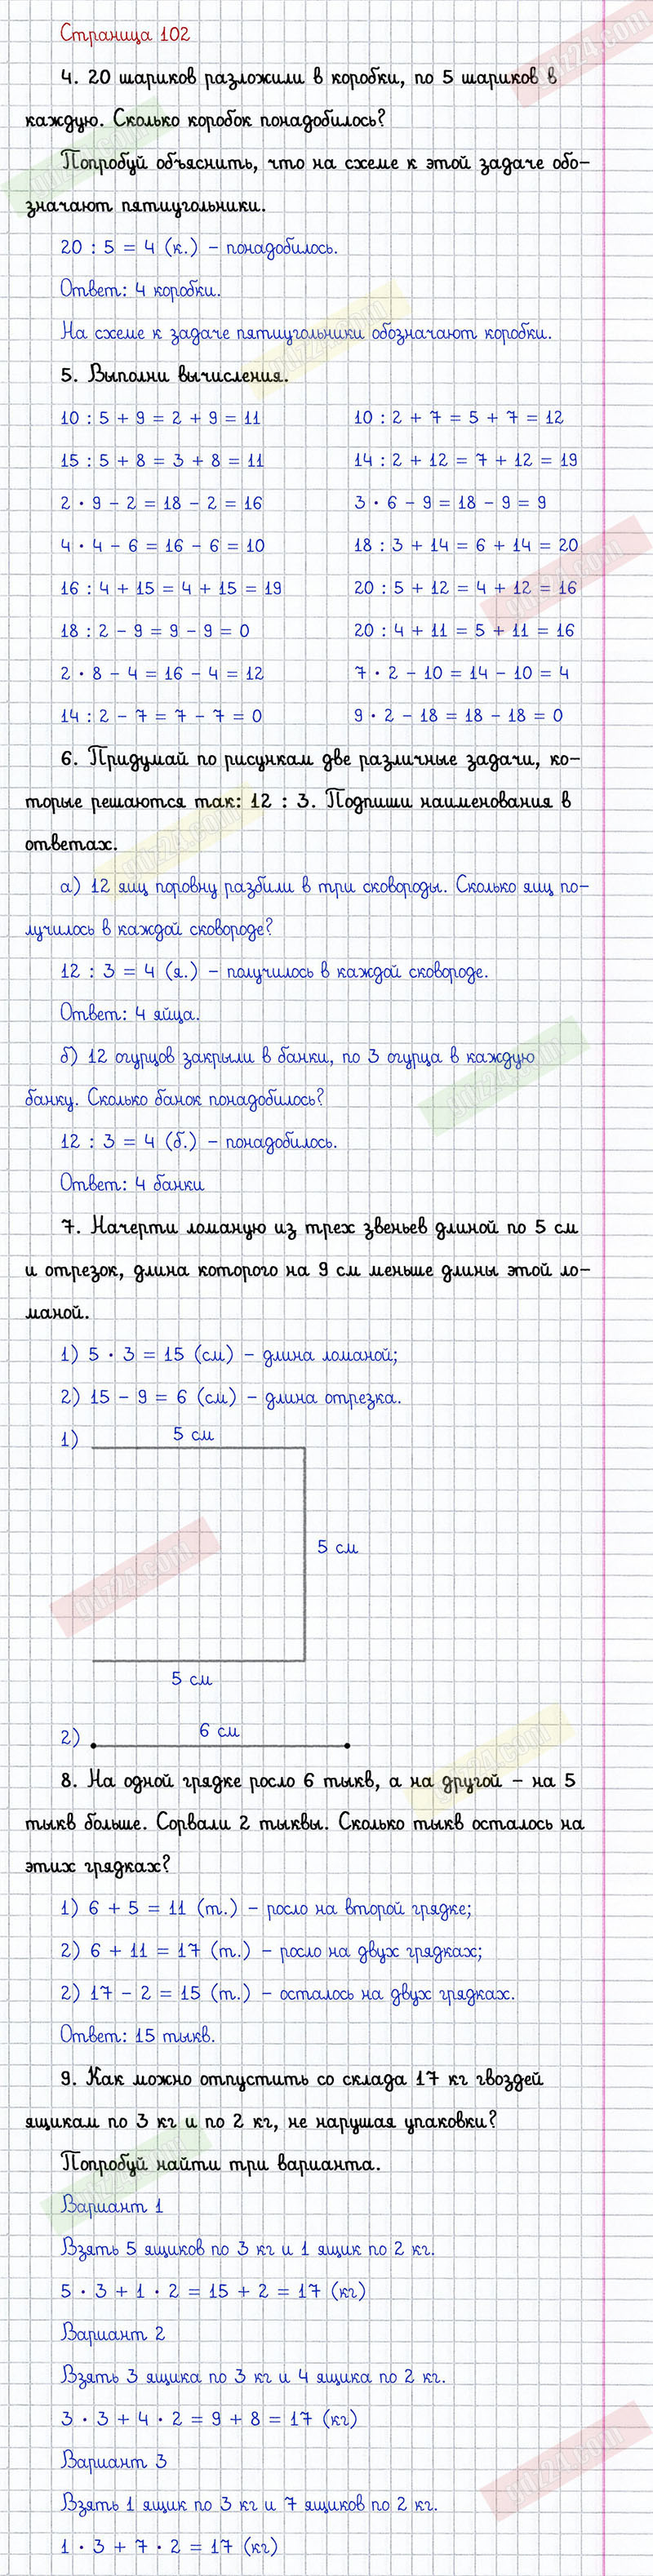 Страница 102
4. 20 шариков разложили в коробки, по 5 шариков в
каждую. Сколько коробок понадобилось?
Попробуй объяснить, что на схеме к этой задаче обо-
значают пятиугольники.
20 : 5 = 4 (к.) – понадобилось.
Ответ: 4 коробки.
На схеме к задаче пятиугольники обозначают коробки.
5. Выполни вычисления.
10 : 5 + 9 = 2 + 9 = 11 10 : 2 + 7 = 5 + 7 = 12
15 : 5 + 8 = 3 + 8 = 11 14 : 2 + 12 = 7 + 12 = 19
2 · 9 – 2 = 18 – 2 = 16 3 · 6 – 9 = 18 – 9 = 9
4 · 4 – 6 = 16 – 6 = 10 18 : 3 + 14 = 6 + 14 = 20
16 : 4 + 15 = 4 + 15 = 19 20 : 5 + 12 = 4 + 12 = 16
18 : 2 – 9 = 9 – 9 = 0 20 : 4 + 11 = 5 + 11 = 16
2 · 8 – 4 = 16 – 4 = 12 7 · 2 – 10 = 14 – 10 = 4
14 : 2 – 7 = 7 – 7 = 0 9 · 2 – 18 = 18 – 18 = 0
6. Придумай по рисункам две различные задачи, ко-
торые решаются так: 12 : 3. Подпиши наименования в
ответах.
а) 12 яиц поровну разбили в три сковороды. Сколько яиц по-
лучилось в каждой сковороде?
12 : 3 = 4 (я.) – получилось в каждой сковороде.
Ответ: 4 яйца.
б) 12 огурцов закрыли в банки, по 3 огурца в каждую
банку. Сколько банок понадобилось?
12 : 3 = 4 (б.) – понадобилось.
Ответ: 4 банки
7. Начерти ломаную из трех звеньев длиной по 5 см
и отрезок, длина которого на 9 см меньше длины этой ло-
маной.
1) 5 · 3 = 15 (см) – длина ломаной;
2) 15 – 9 = 6 (см) – длина отрезка.
1) 5 см
5 см
5 см
2) 6 см
8. На одной грядке росло 6 тыкв, а на другой – на 5
тыкв больше. Сорвали 2 тыквы. Сколько тыкв осталось на
этих грядках?
1) 6 + 5 = 11 (т.) – росло на второй грядке;
2) 6 + 11 = 17 (т.) – росло на двух грядках;
2) 17 – 2 = 15 (т.) – осталось на двух грядках.
Ответ: 15 тыкв.
9. Как можно отпустить со склада 17 кг гвоздей
ящикам по 3 кг и по 2 кг, не нарушая упаковки?
Попробуй найти три варианта.
Вариант 1
Взять 5 ящиков по 3 кг и 1 ящик по 2 кг.
5 · 3 + 1 · 2 = 15 + 2 = 17 (кг)
Вариант 2
Взять 3 ящика по 3 кг и 4 ящика по 2 кг.
3 · 3 + 4 · 2 = 9 + 8 = 17 (кг)
Вариант 3
Взять 1 ящик по 3 кг и 7 ящиков по 2 кг.
1 · 3 + 7 · 2 = 17 (кг)